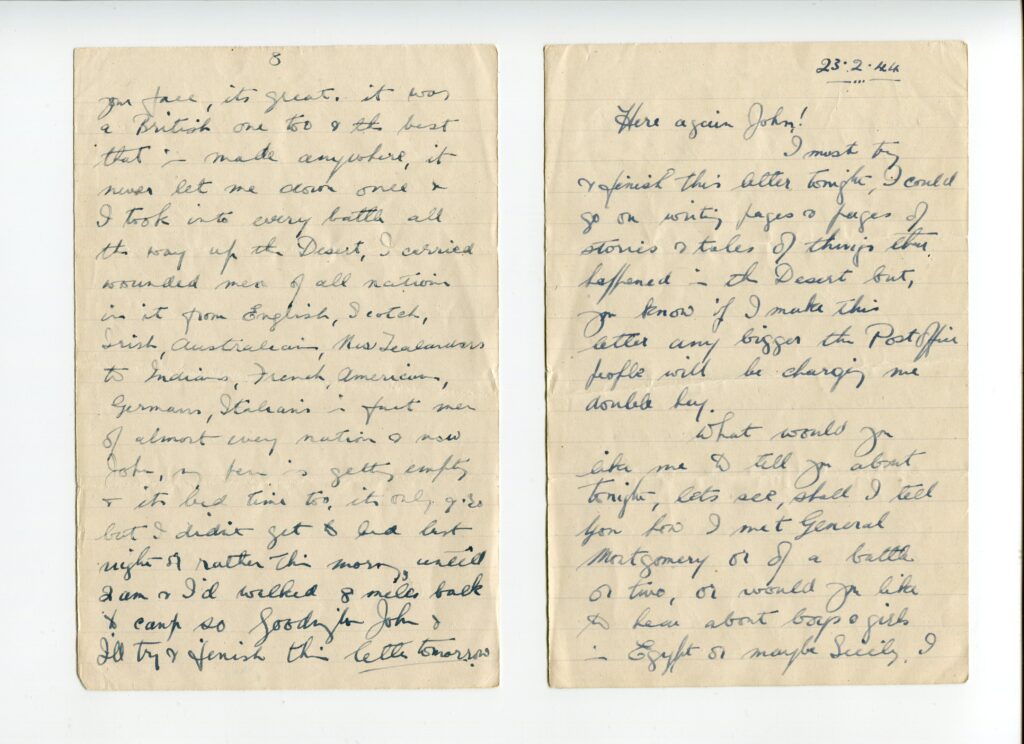 8
your face, its great. it was
a British one too & the best
that is made anywhere, it
never let me down once &
I took into every battle all
the way up the Desert, I carried
wounded men of all nations
in it from English, Scotch,
Irish, Australians, New Zealanders
to Indians, French, Americans,
Germans, Italians in fact men
of almost every nation & now
John, my pen is getting empty
& its bed time too, its only 9.30
but I didnt get to bed last
night or rather this morning, until
2 am & I'd walked 8 miles back
to camp so Goodnight John &
I'll try & finish this letter tomorrow
23.2.44
Here again John!
I must try
& finish this letter tonight, I could
go on writing pages & pages of
stories & tales of things that
happened in the Desert but,
you know if I make this
letter any bigger the Post Office
people will be charging me
double
What would you
like me to tell you about
tonight, lets see, shall I tell
you how I met General
Montgomery or of a battle
or two, or would you like
to hear about boys & girls
in Egypt or maybe Sicily, I